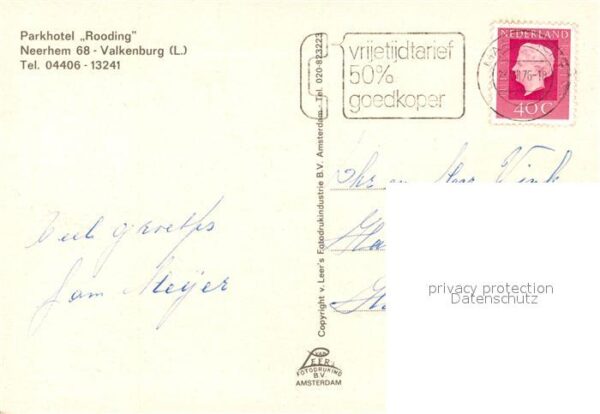 Parkhotel „Rooding"
Neerhem 68 - Valkenburg (L.)
Tel. 04406 - 13241
vrijetijdtarief
50%
goedkoper
NEDERLAND
40c
Copyright v. Leer's Fotodrukindustrie B.V. Amsterdam - Tel. 020-823223
Veel groetjes
Jam Meijer
Vink
privacy protection
Datenschutz
VAN
LEER'S
FOTODRUKIND
B.V.
AMSTERDAM